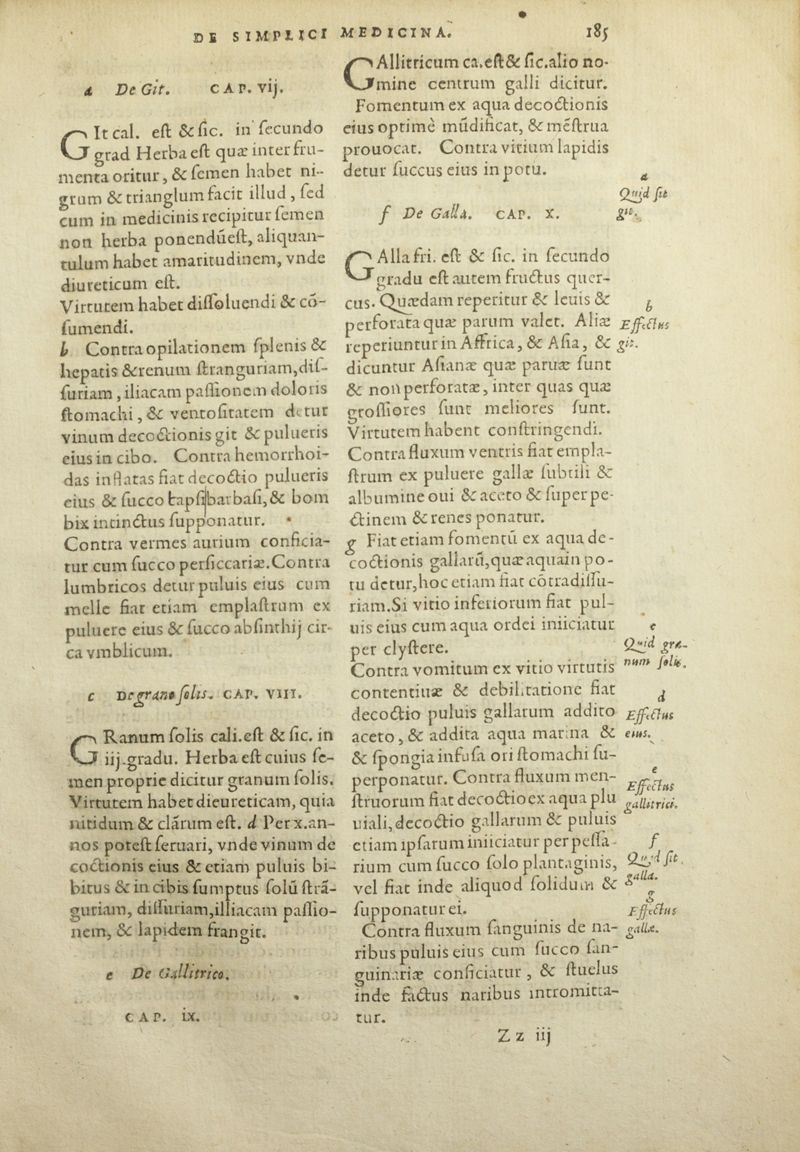 DE SIMPLICI MEDICINA. 185
a De Git. CAP. vij.
GIt cal. est & sic. in secundo
grad Herba est quæ inter fru-
menta oritur, & semen habet ni-
grum & trianglum facit illud, sed
cum in medicinis recipitur semen
non herba ponendúest, aliquan-
tulum habet amaritudinem, vnde
diureticum est.
Virtutem habet dissoluendi & cō-
sumendi.
b Contra opilationem splenis &
hepatis &renum stranguriam, dis-
suriam, iliacam passionem doloris
stomachi, & ventositatem detur
vinum decoctionis git & pulueris
eius in cibo. Contra hemorrhoi-
das inflatas fiat decoctio pulueris
eius & succo tapsi barbasi, & bom
bix intinctus supponatur.
Contra vermes aurium conficia-
tur cum succo persiccariæ. Contra
lumbricos detur puluis eius cum
melle fiat etiam emplastrum ex
puluere eius & succo absinthij cir-
ca vmblicum.
c De grano solis. CAP. VIII.
GRanum solis cali. est & sic. in
iij. gradu. Herba est cuius se-
men proprie dicitur granum solis.
Virtutem habet dieureticam, quia
nitidum & clárum est. d Per x. an-
nos potest seruari, vnde vinum de
coctionis eius & etiam puluis bi-
bitus & in cibis sumptus solū strā-
guriam, dissuriam, illiacam passio-
nem, & lapidem frangit.
e De Gallitrico.
CAP. ix.
GAllitricum ca. est & sic. alio no-
mine centrum galli dicitur.
Fomentum ex aqua decoctionis
eius optimè mūdificat, & mēstrua
prouocat. Contra vitium lapidis
detur succus eius in potu.
f De Galla. CAP. X.
GAlla fri. est & sic. in secundo
gradu est autem fructus quer-
cus. Quædam reperitur & leuis &
perforata quæ parum valet. Aliæ
reperiuntur in Affrica, & Asia, &
dicuntur Asianæ quæ paruæ sunt
& non perforatæ, inter quas quæ
grossiores sunt meliores sunt.
Virtutem habent constringendi.
Contra fluxum ventris fiat empla-
strum ex puluere gallæ subtili &
albumine oui & aceto & super pe-
ctinem & renes ponatur.
g Fiat etiam fomentū ex aqua de-
coctionis gallarū, quæ aquain po-
tu detur, hoc etiam fiat cōtradissu-
riam. Si vitio inferiorum fiat pul-
uis eius cum aqua ordei iniiciatur
per clystere.
Contra vomitum ex vitio virtutis
contentiuæ & debilitatione fiat
decoctio puluis gallarum addito
aceto, & addita aqua marina &
& spongia infusa ori stomachi su-
perponatur. Contra fluxum men-
struorum fiat decoctio ex aqua plu
uiali, decoctio gallarum & puluis
etiam ipsarum iniiciatur per pessa-
rium cum succo solo plantaginis,
vel fiat inde aliquod solidum &
supponatur ei.
Contra fluxum sanguinis de na-
ribus puluis eius cum succo san-
guinariæ conficiatur, & stuelus
inde factus naribus intromitta-
tur.
Zz iij
a
Quid sit
git.
b
Effectus
git.
c
Quid gra-
num solis.
d
Effectus
eius.
e
Effectus
gallitrici.
f
Quid sit
galla.
g
Effectus
gallæ.